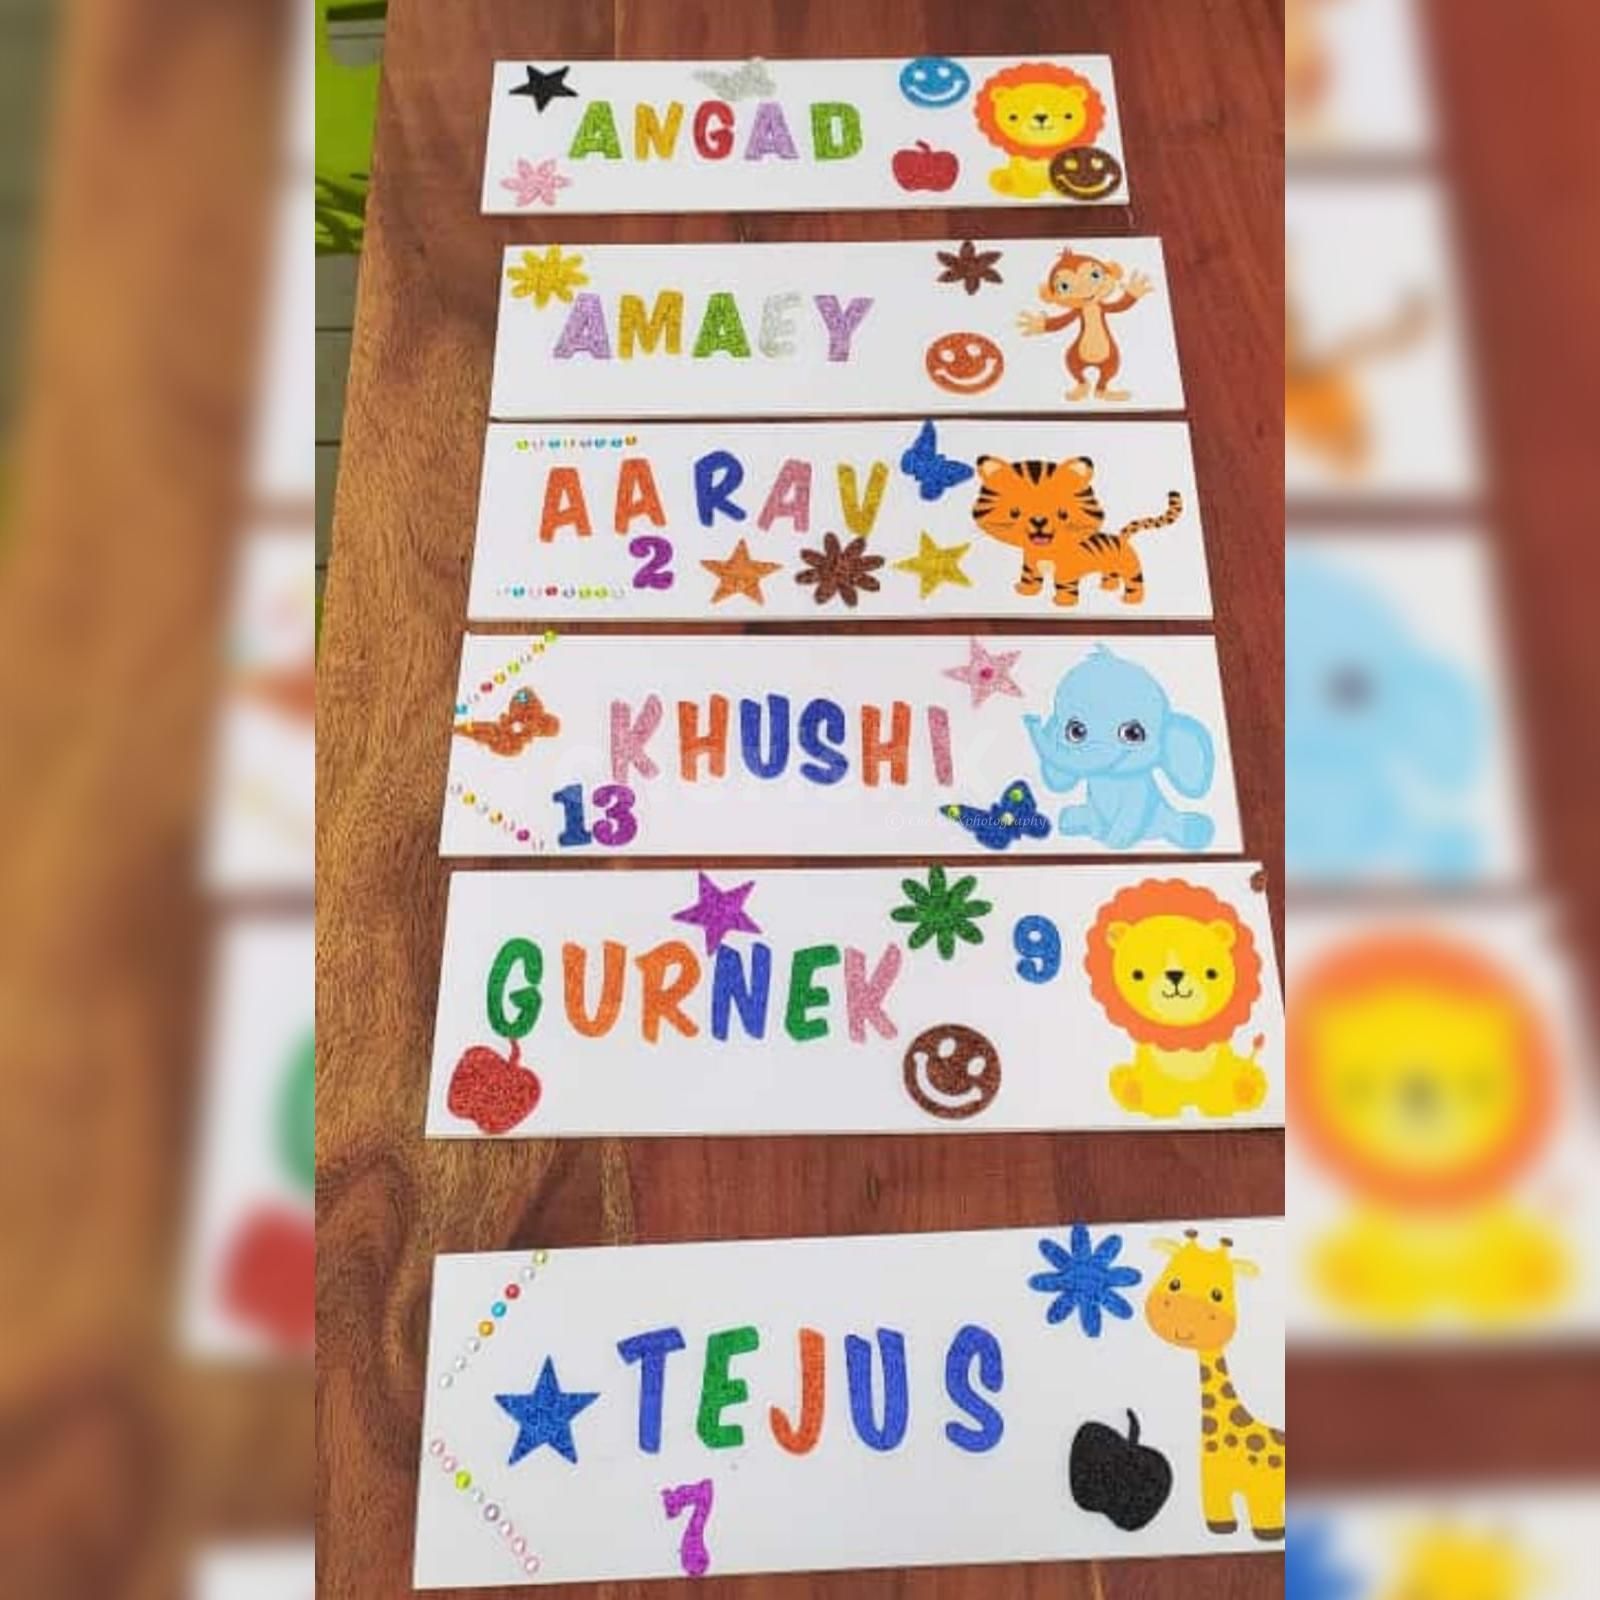 ANGAD
AMAEY
AARAV
2
KHUSHI
13
GURNEK
9
TEJUS
7